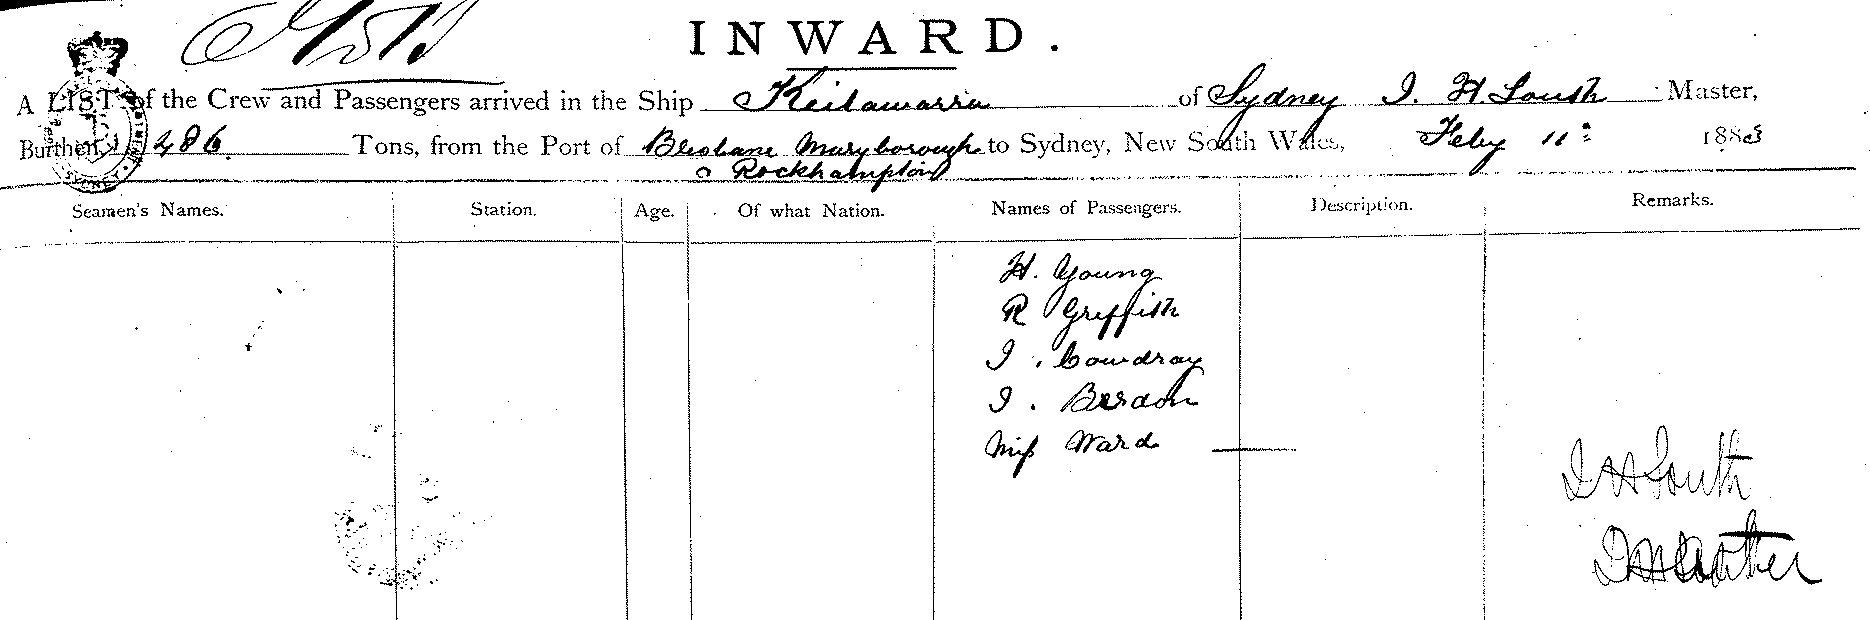 INWARD.
A LIST of the Crew and Passengers arrived in the Ship Keilawarra of Sydney I. H South Master,
Burthen 486 Tons, from the Port of Brisbane Maryborough to Sydney, New South Wales, Feby 11: 1883
& Rockhampton
Seamen's Names. Station. Age. Of what Nation. Names of Passengers. Description. Remarks.
H. Young
R Griffith
I. Cowdray
I. Berdon
Miss Ward
I H South